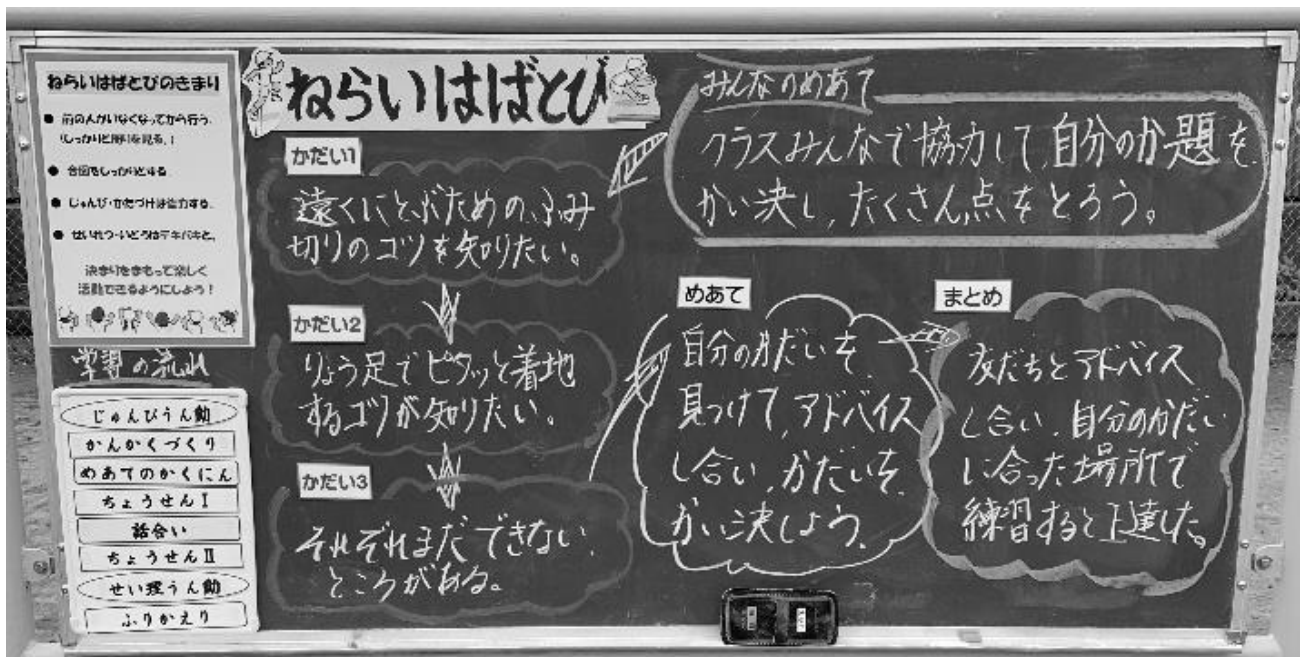 ねらいはばとびのきまり
● 前の人がいなくなってから行う。
(しっかりと周りを見る。)
● 合図をしっかりとする。
● じゅんび・かたづけは協力する。
● せいれつ・いどうはテキパキと。
決まりをまもって楽しく
活動できるようにしよう!
学習の流れ
じゅんびうん動
かんかくづくり
めあてのかくにん
ちょうせんⅠ
話合い
ちょうせんⅡ
せい理うん動
ふりかえり
ねらいはばとび
かだい1
遠くにとぶための、ふみ
切りのコツを知りたい。
かだい2
りょう足でピタッと着地
するコツが知りたい。
かだい3
それぞれまだできない
ところがある。
みんなのめあて
クラスみんなで協力して自分のか題を
かい決し、たくさん点をとろう。
めあて
自分のかだいを
見つけて、アドバイス
し合い、かだいを
かい決しよう。
まとめ
友だちとアドバイス
し合い、自分のかだい
に合った場所で
練習すると上達した。